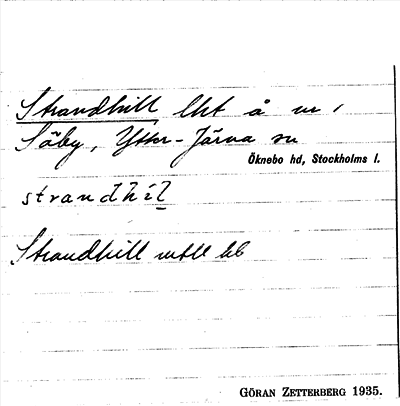 Strandhill lht å
Säby, Ytter-Järna sn
Öknebo hd, Stockholms l.
strandhil
Strandhill
GÖRAN ZETTERBERG 1935.